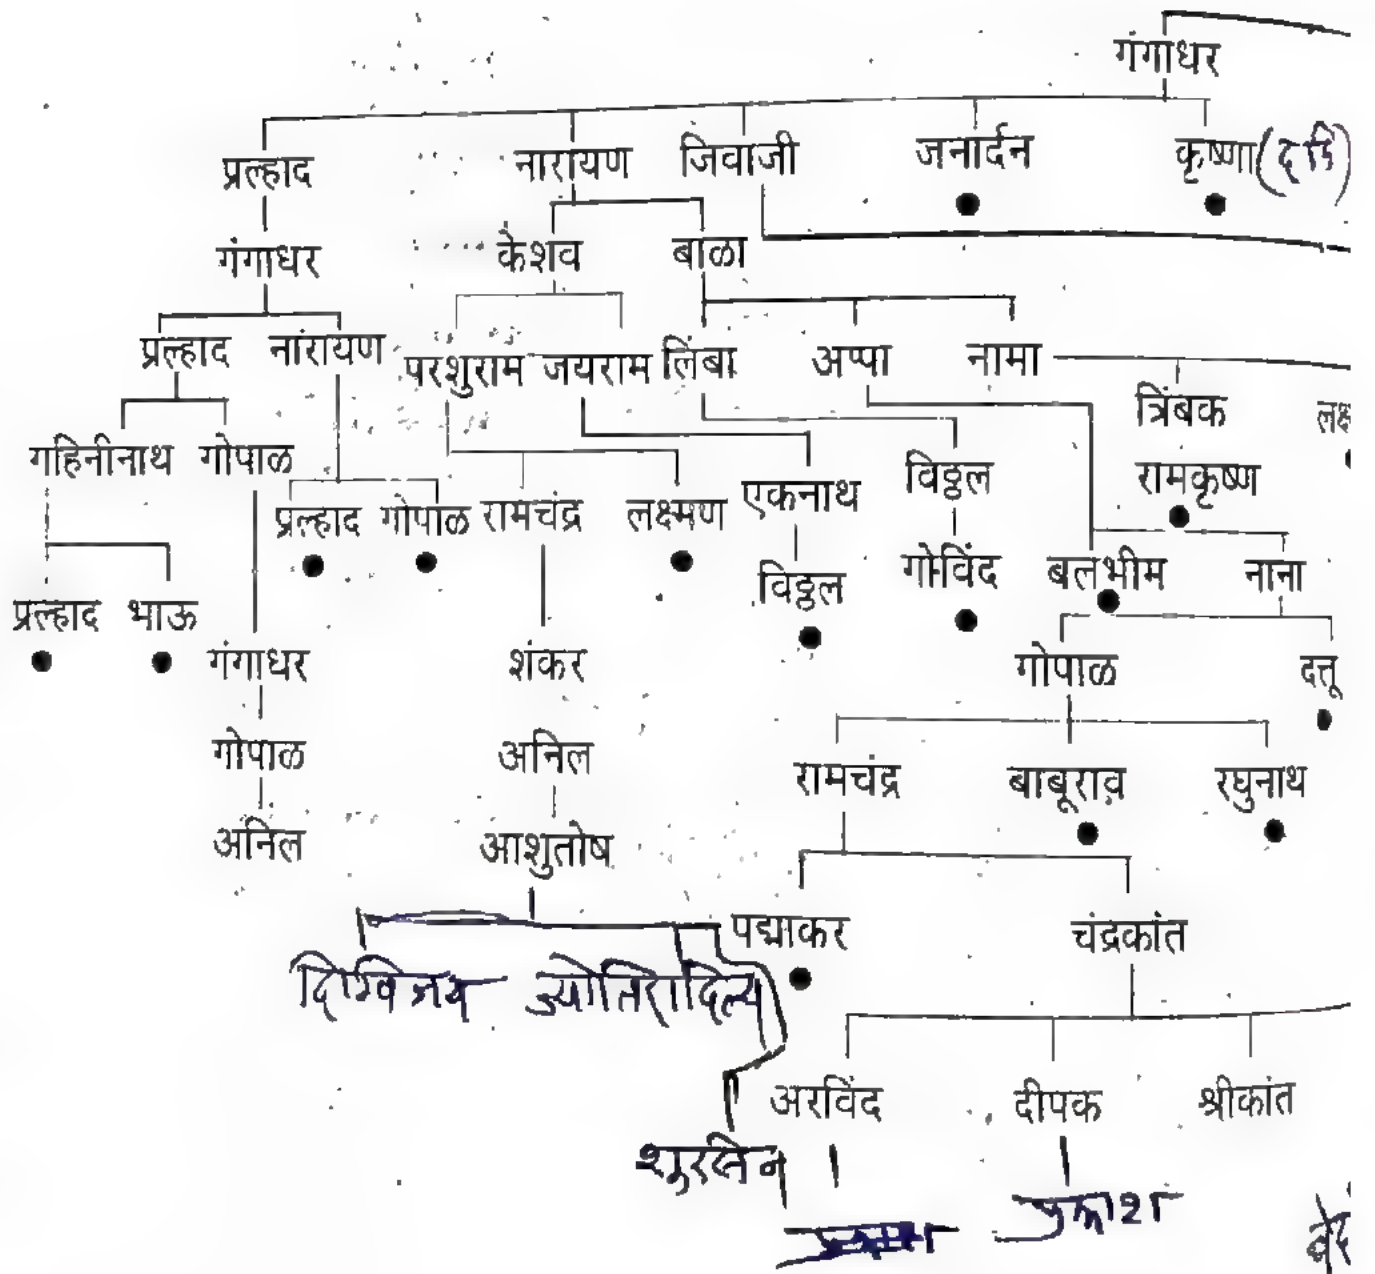 गंगाधर
प्रल्हाद नारायण जिवाजी जनार्दन कृष्णा
गंगाधर केशव बाळा
प्रल्हाद नारायण परशुराम जयराम लिंबा अप्पा नामा
त्रिंबक
गहिनीनाथ गोपाळ विठ्ठल रामकृष्ण
प्रल्हाद गोपाळ रामचंद्र लक्ष्मण एकनाथ
प्रल्हाद भाऊ विठ्ठल गोविंद बलभीम नाना
गंगाधर शंकर गोपाळ दत्तू
गोपाळ अनिल रामचंद्र बाबूराव रघुनाथ
अनिल आशुतोष
पद्माकर चंद्रकांत
दिग्विजय ज्योतिरादित्य
अरविंद दीपक श्रीकांत
शुरसेन
प्रकाश